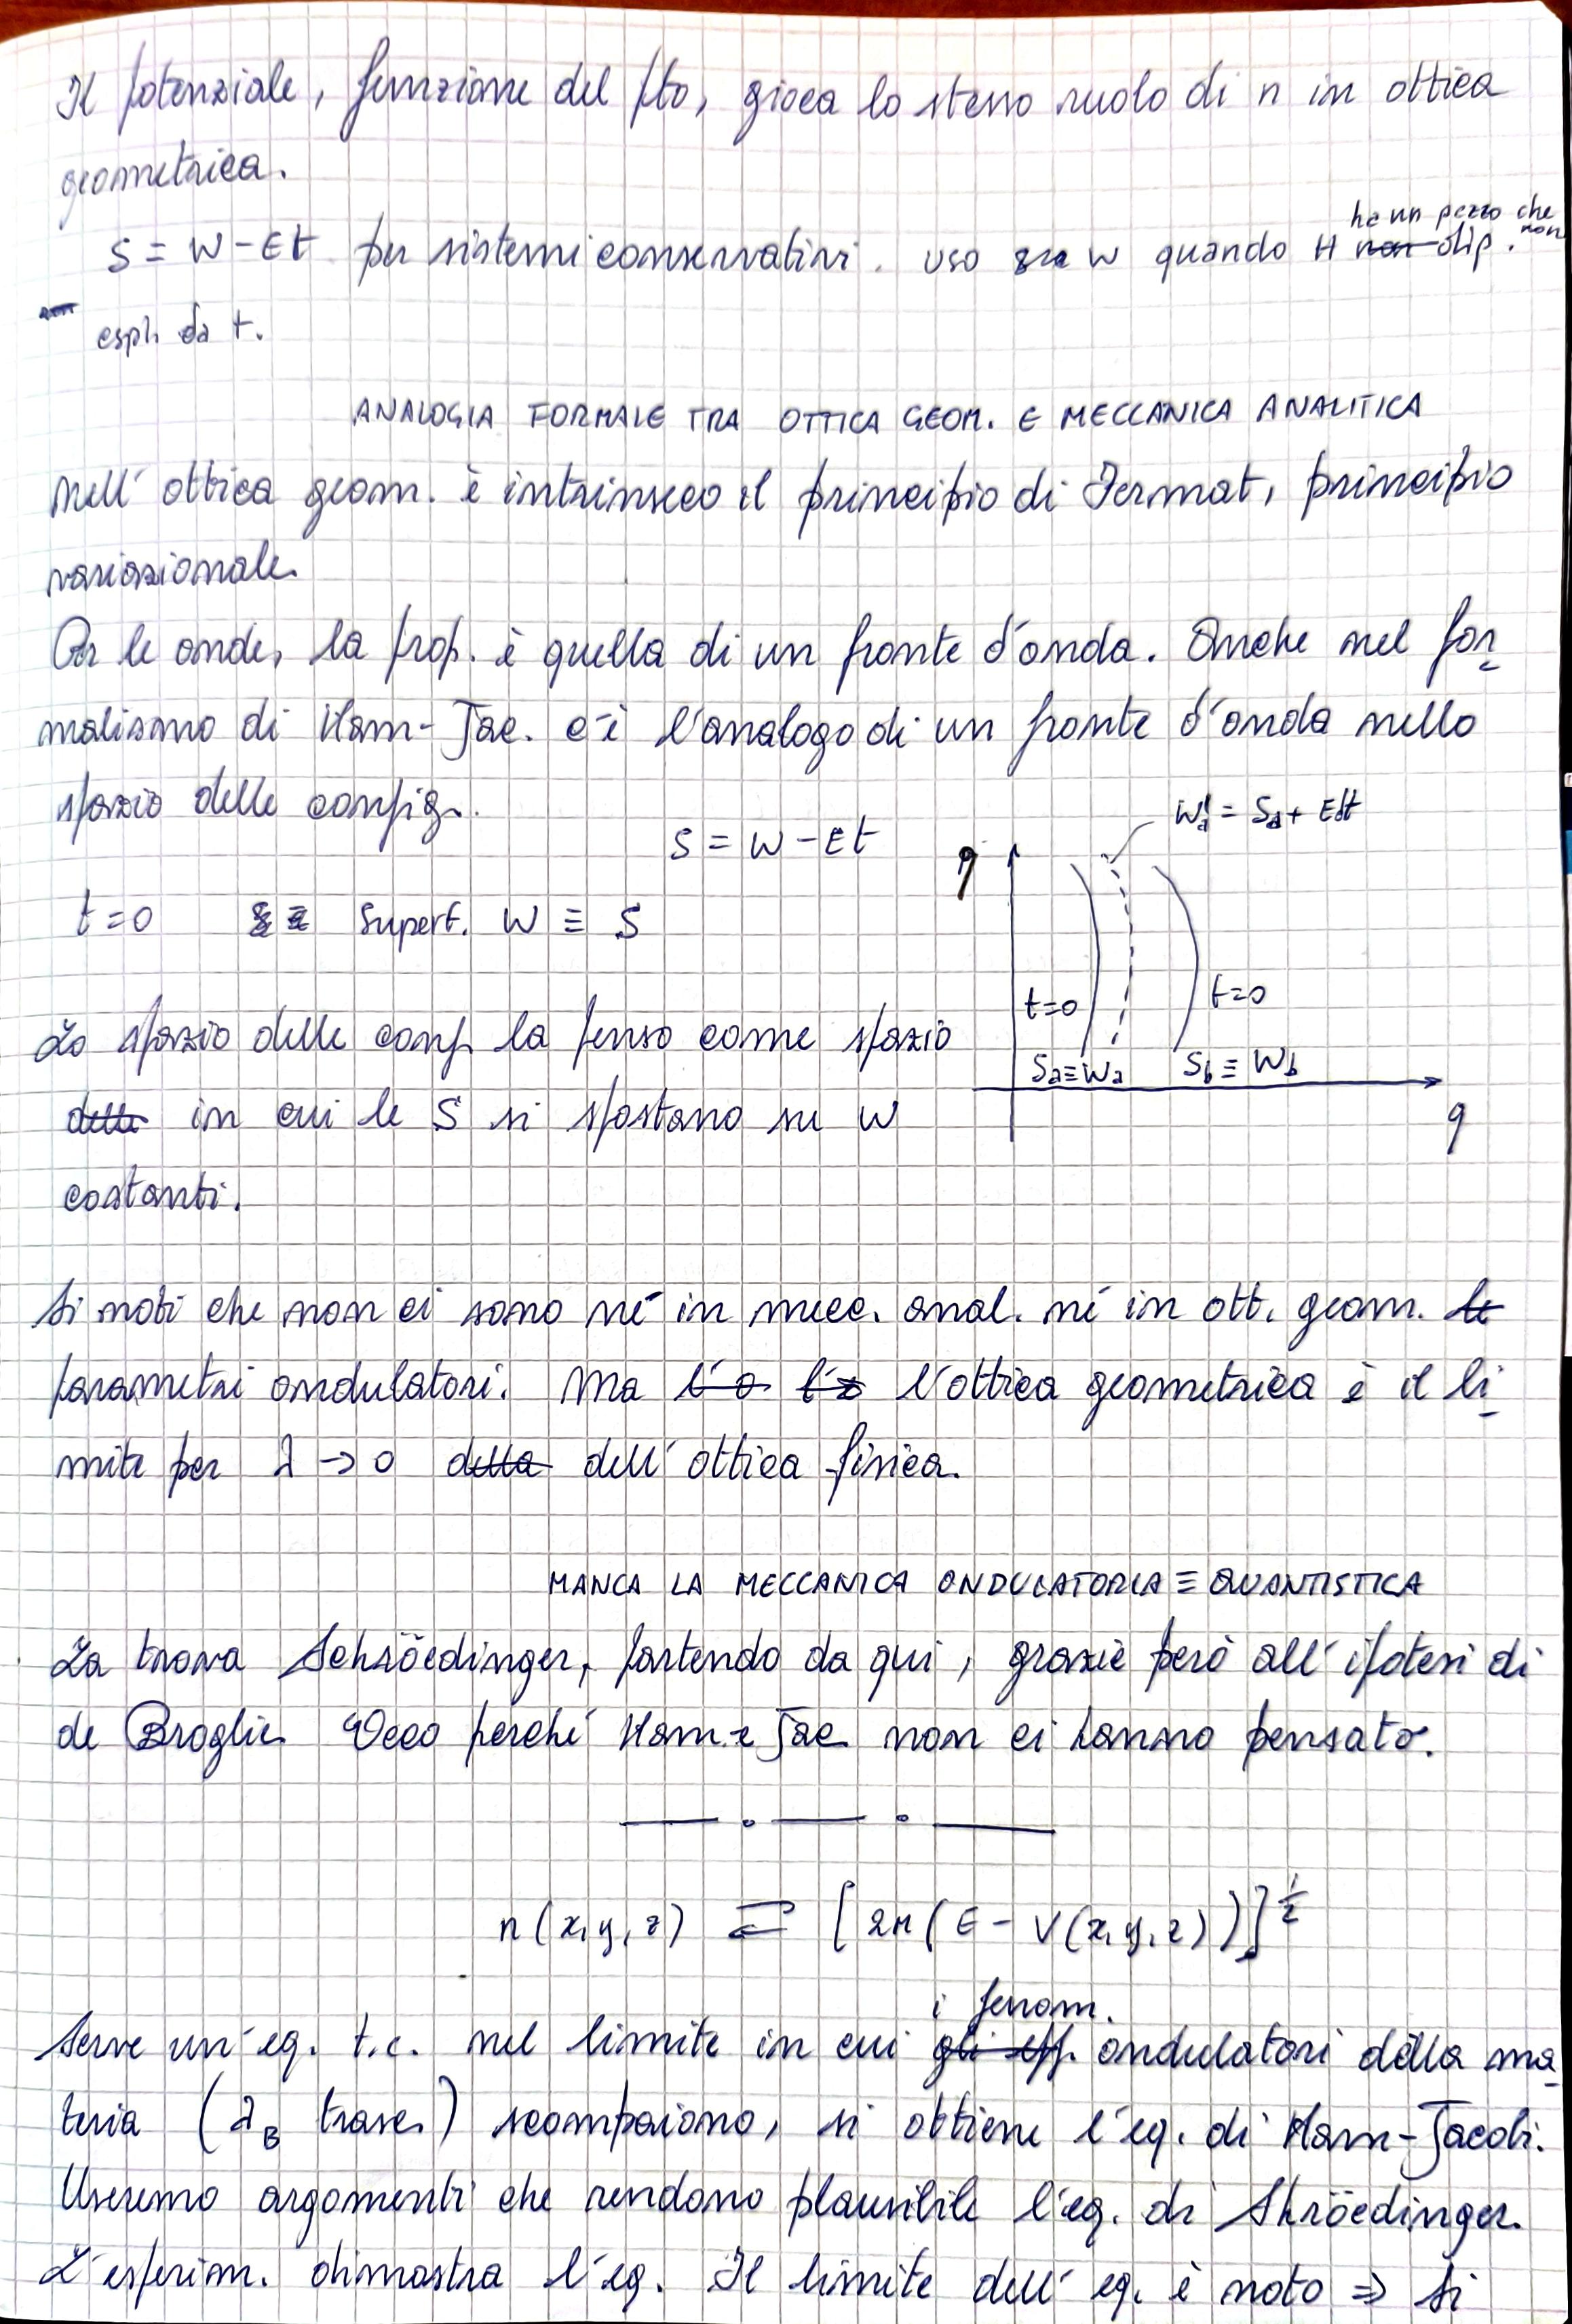 Il potenziale, funzione del pto, gioca lo stesso ruolo di n in ottica
geometrica.
ha un pezzo che
S = W - Et per sistemi conservativi. uso W quando H dip. non
espl. da t.
ANALOGIA FORMALE TRA OTTICA GEOM. E MECCANICA ANALITICA
Nell' ottica geom. è intrinseco il principio di Fermat, principio
variazionale.
Per le onde, la prop. è quella di un fronte d'onda. Anche nel for
malismo di Ham-Jac. c'è l'analogo di un fronte d'onda nello
spazio delle config.
W'a = Sa + Edt
S = W - Et
q
t=0 Superf. W ≡ S
t=0 t=0
Lo spazio delle conf. la penso come spazio
Sa≡Wa Sb≡Wb
in cui le S si spostano su W
q
costanti.
Si noti che non ci sono né in mecc. anal. né in ott. geom.
parametri ondulatori. Ma l'ottica geometrica è il li
mite per λ → 0 dell' ottica fisica.
MANCA LA MECCANICA ONDULATORIA ≡ QUANTISTICA
La trova Schröedinger, partendo da qui, grazie però all' ipotesi di
de Broglie. Ecco perché Ham. e Jac. non ci hanno pensato.
n(x,y,z) ⇄ [2M(E - V(x,y,z))]^1/2
i fenom.
Serve un' eq. t.c. nel limite in cui ondulatori della ma
teria (λB trasc.) scompaiono, si ottiene l'eq. di Ham-Jacobi.
Useremo argomenti che rendono plausibile l'eq. di Shröedinger.
L'esperim. dimostra l'eq. Il limite dell' eq. è noto ⇒ si